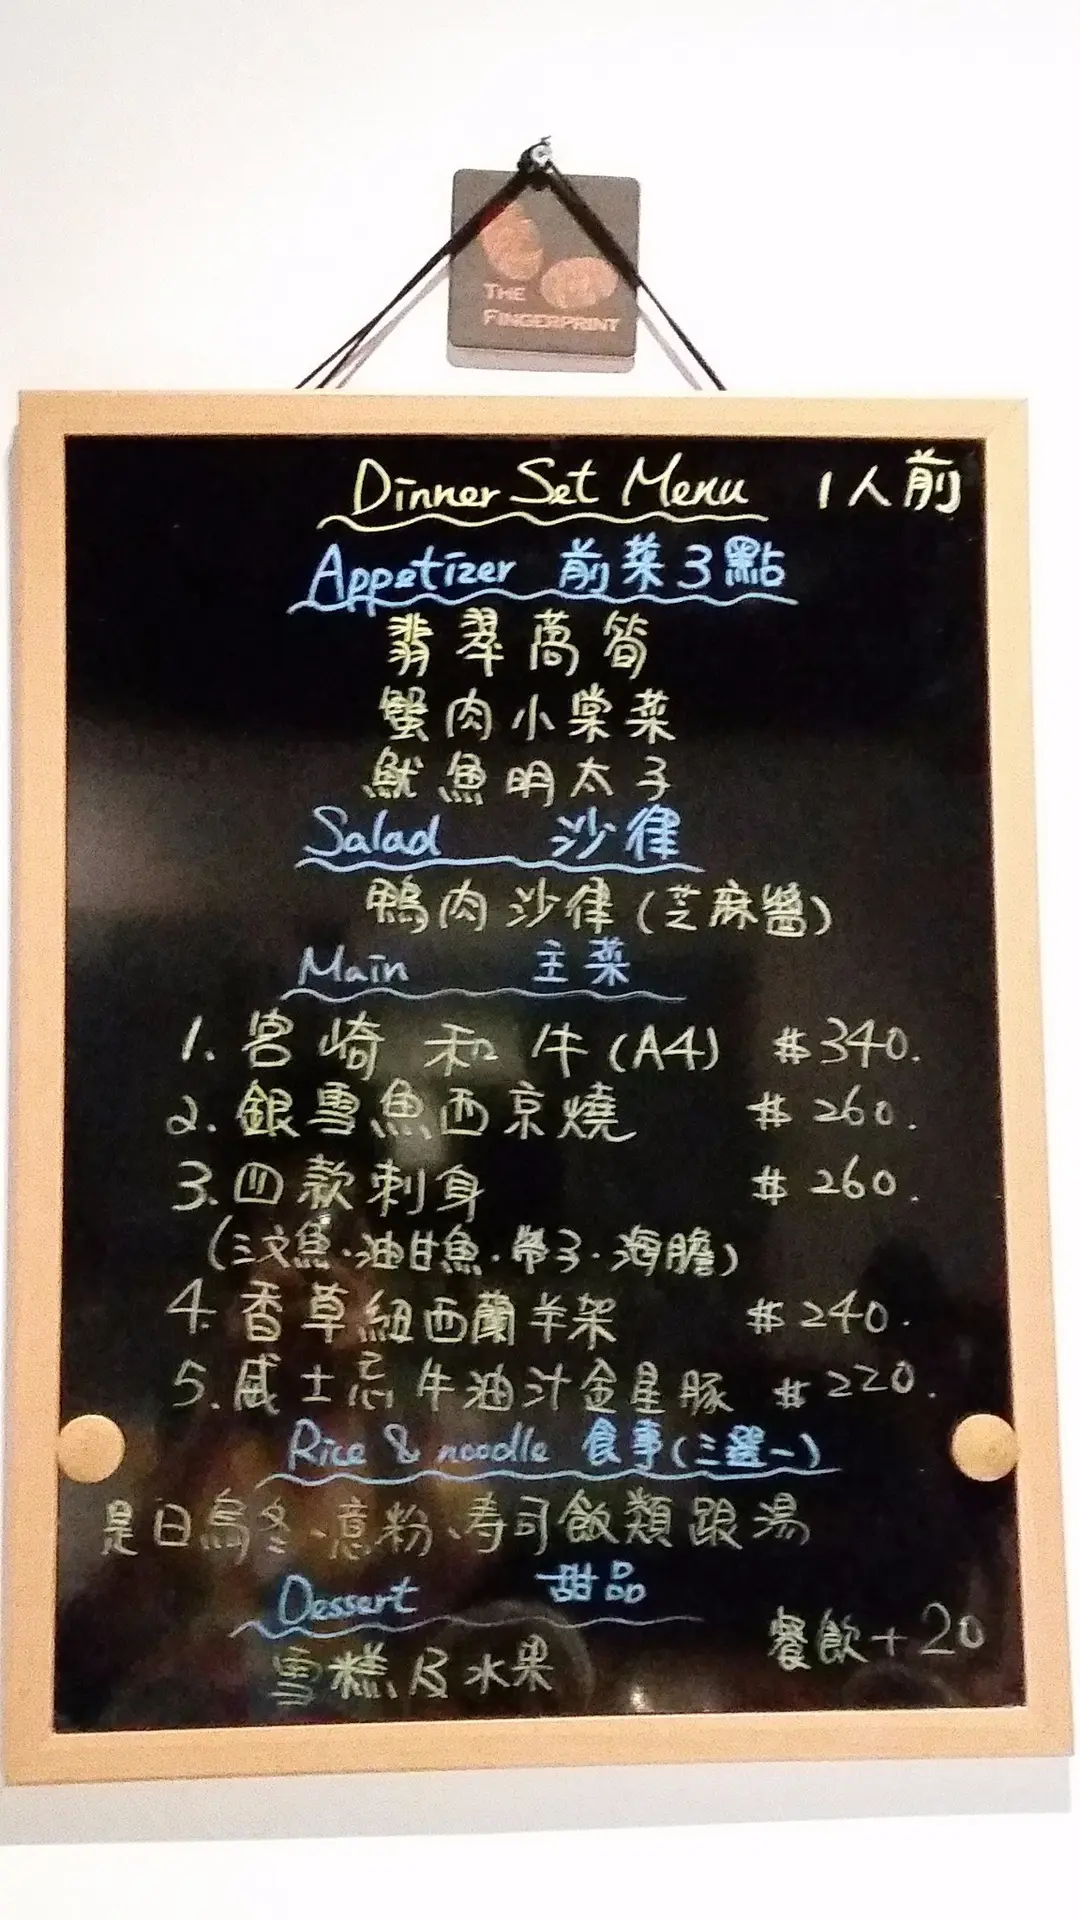 THE
FINGERPRINT
Dinner Set Menu 1人前
Appetizer 前菜3點
翡翠萵筍
蟹肉小棠菜
魷魚明太子
Salad 沙律
鴨肉沙律(芝麻醬)
Main 主菜
1. 宮崎和牛(A4) $340.
2. 銀雪魚西京燒 $260.
3. 四款刺身 $260.
(三文魚·油甘魚·帶子·海膽)
4. 香草紐西蘭羊架 $240.
5. 威士忌牛油汁金星豚 $220.
Rice & noodle 食事(三選一)
是日烏冬、意粉、寿司飯類跟湯
Dessert 甜品
雪糕及水果
餐飲+20